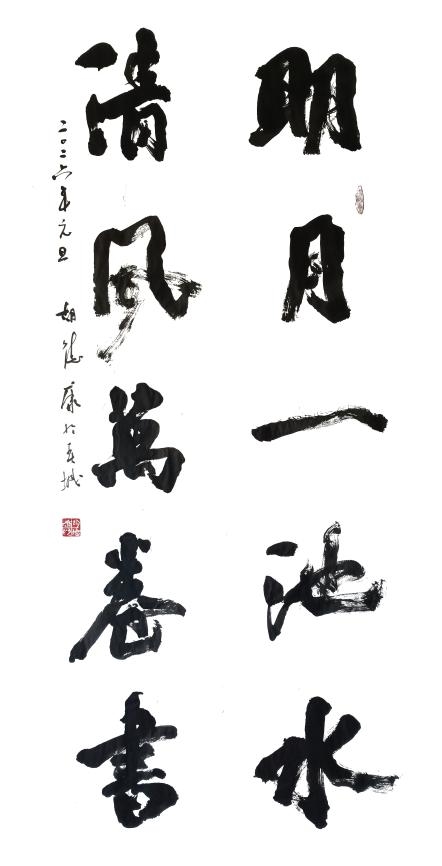 明月一池水
清風萬卷書
二〇二六年元旦 胡德康於春城